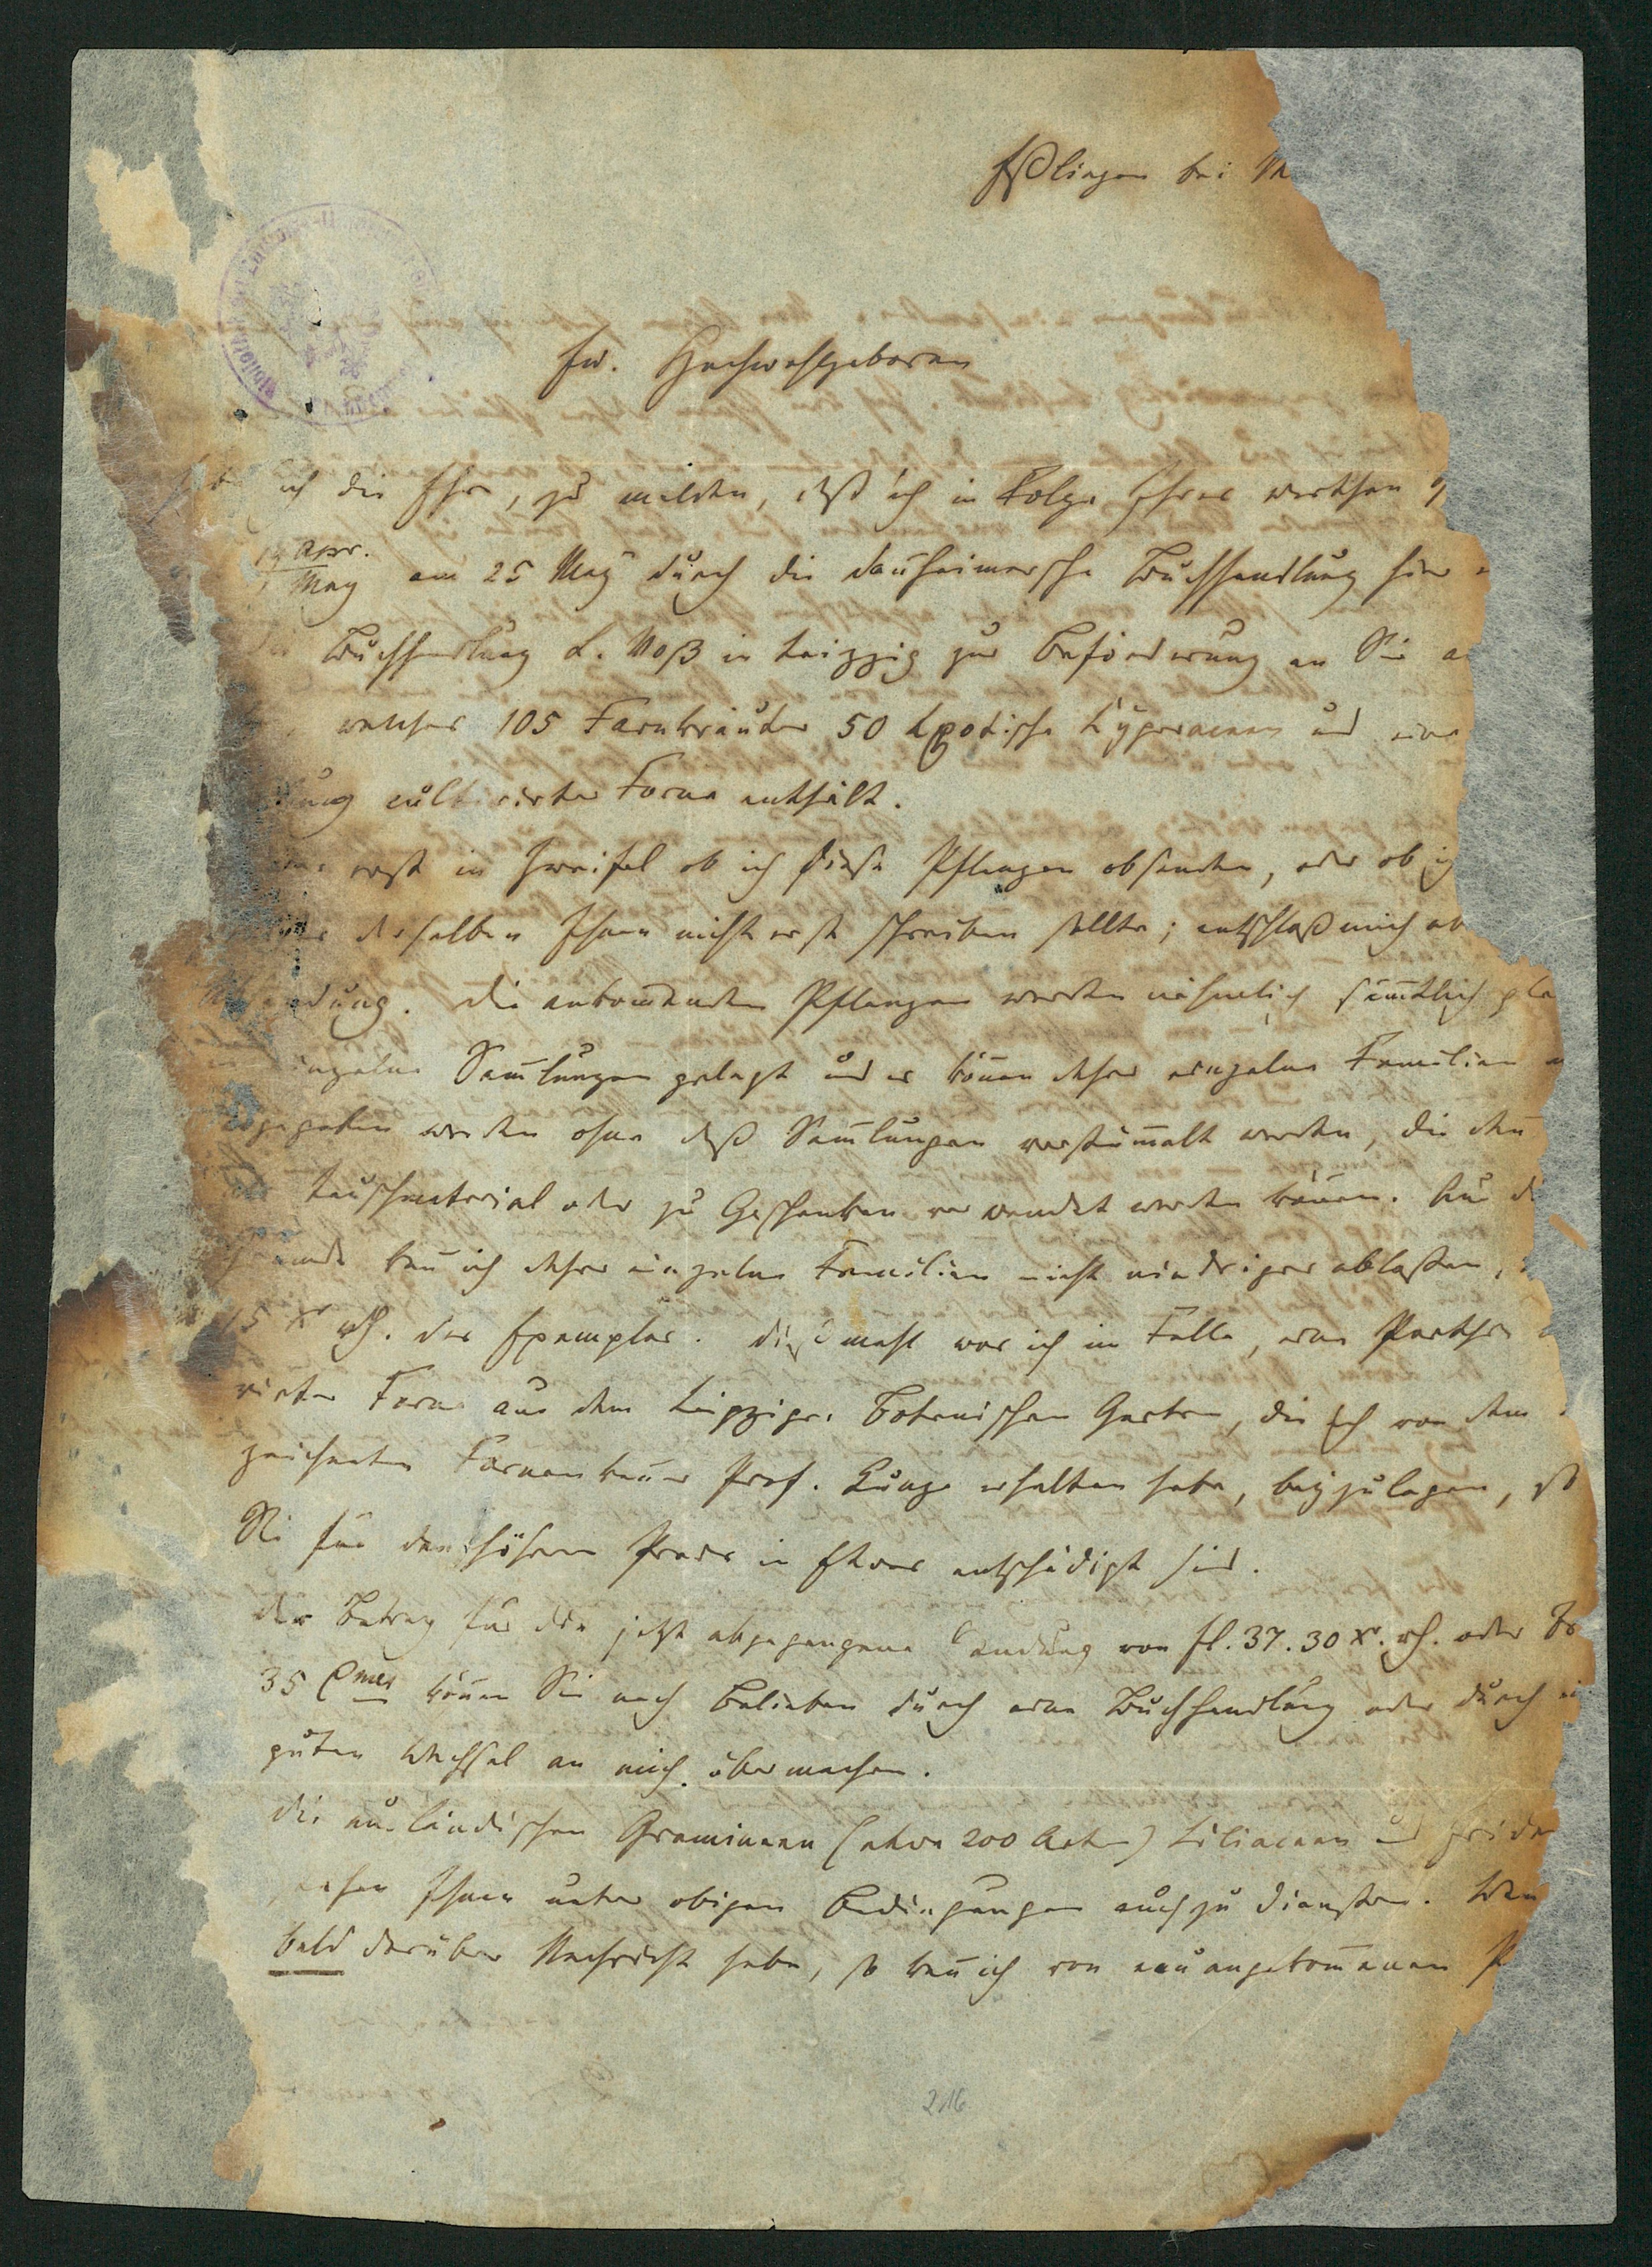 Eßlingen bei
Ew. Hochwohlgeboren
ich die Ehre, zu melden, daß ich in Folge Ihres werthen
Apr.
May am 25 May durch die Dannheimersche Buchhandlung hier
Buchhandlung L. Voß in Leipzig zur Beförderung an Sie
welches 105 Farnkräuter 50 exotische Cyperaceen und eine
cultivirter Farne enthält.
erst in Zweifel ob ich diese Pflanzen absenden, oder ob ich
derselben Ihnen nicht erst schreiben sollte; entschloß mich
Die ankommenden Pflanzen werden nähmlich sämtlich
einzelne Samlungen gelegt und es können daher einzelne Familien
abgegeben werden ohne daß Samlungen verstümmelt werden, die dann
Tauschmaterial oder zu Geschenken verwendet werden können. Aus
Grunde kan ich daher einzelne Familien nicht niedriger ablaßen,
15 xr rh. das Exemplar. Dießmahl war ich im Falle, eine Parthie
virter Farne aus dem Leipziger botanischen Garten, die ich von dem
zeichneten Farnenkenner Prof. Kunze erhalten habe, beyzulegen, so
Sie für den höhern Preis in Etwas entschädigt sind.
Der Betrag für die jetzt abgegangene Sendung von fl. 37. 30 xr. rh. oder
35 Cmes können Sie nach Belieben durch eine Buchhandlung oder durch
guten Wechsel an mich übermachen.
Die ausländischen Gramineen (etwa 200 Arten) Liliaceen und Irideen
Ihnen unter obigen Bedingungen auch zu Diensten. Wenn
bald darüber Nachricht habe, so kan ich von neu angekommenen
216